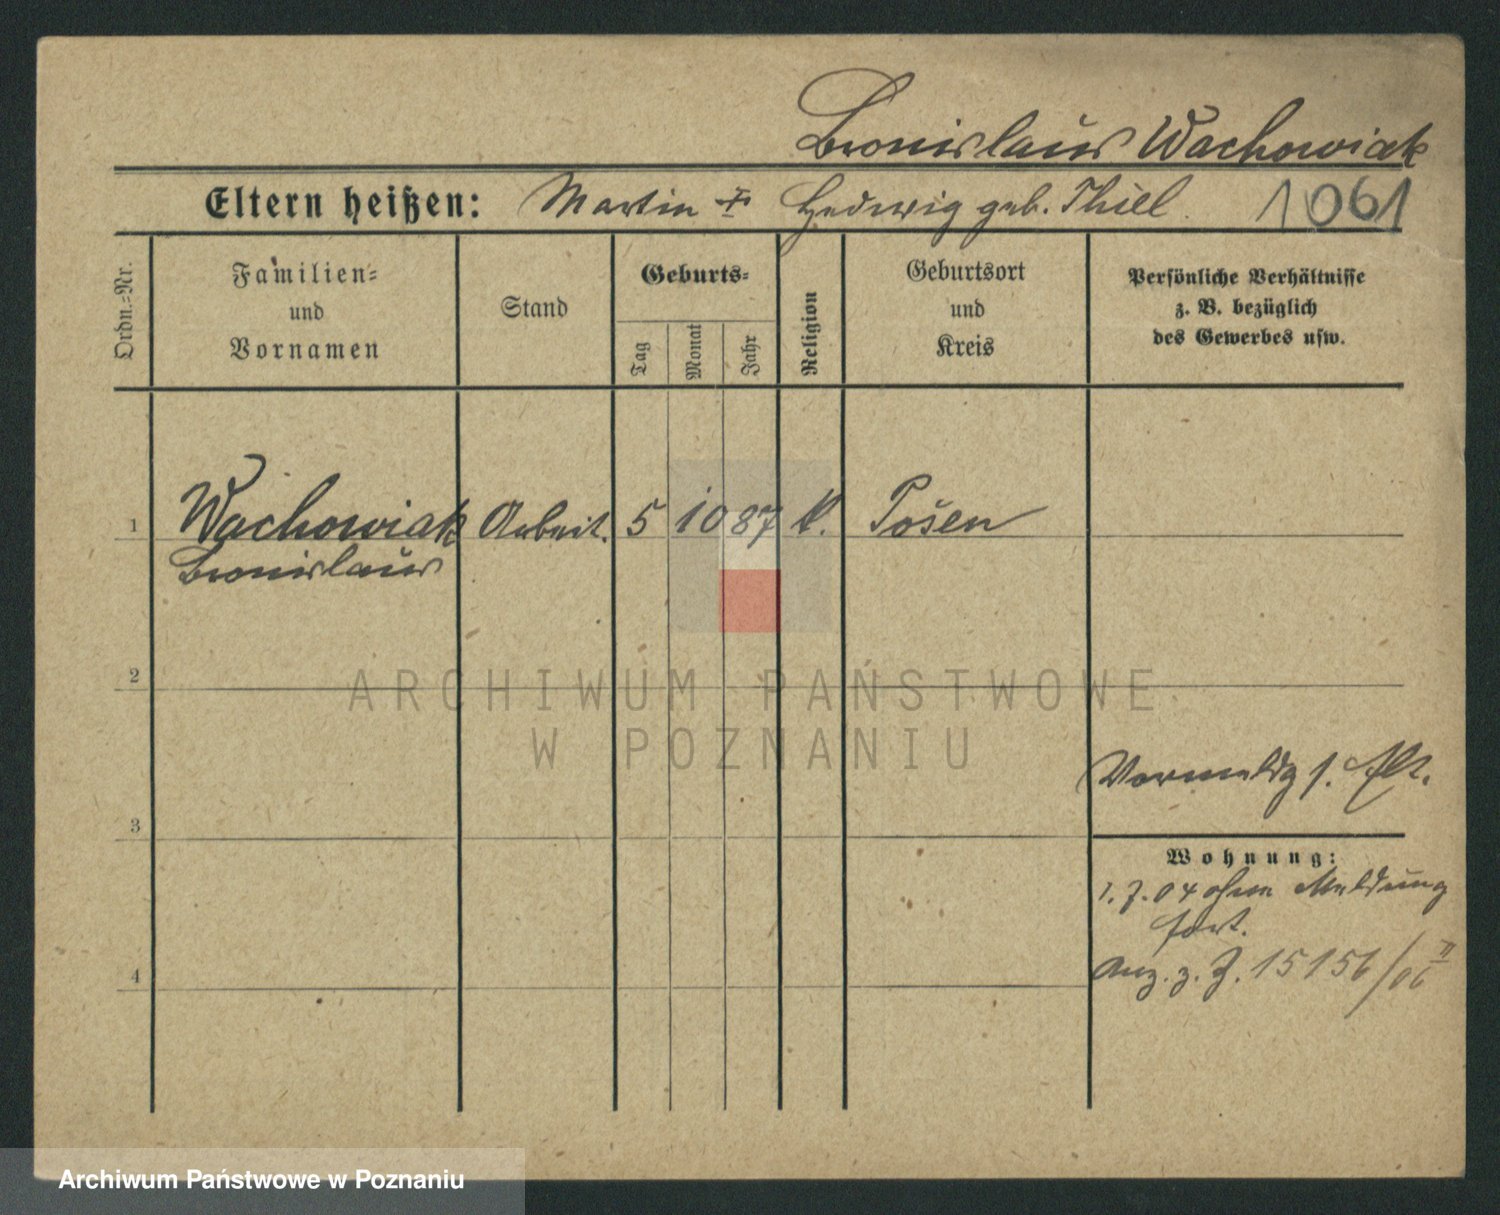 Bronislaus Wachowiak
Eltern heißen: Martin & Hedwig geb. Thiel. 1061
Ordn.=Nr.
Familien=
und
Vornamen
Stand
Geburts=
Tag
Monat
Jahr
Religion
Geburtsort
und
Kreis
Persönliche Verhältnisse
z. B. bezüglich
des Gewerbes usw.
1 Wachowiak Arbeit. 5 10 87 k. Posen
Bronislaus
2
ARCHIWUM PAŃSTWOWE
W POZNANIU
Vormeldg s. Elt.
3
Wohnung:
1. 7. 04 ohne Meldung
fort.
4
Anz. z. J. 15156/06 II
Archiwum Państwowe w Poznaniu